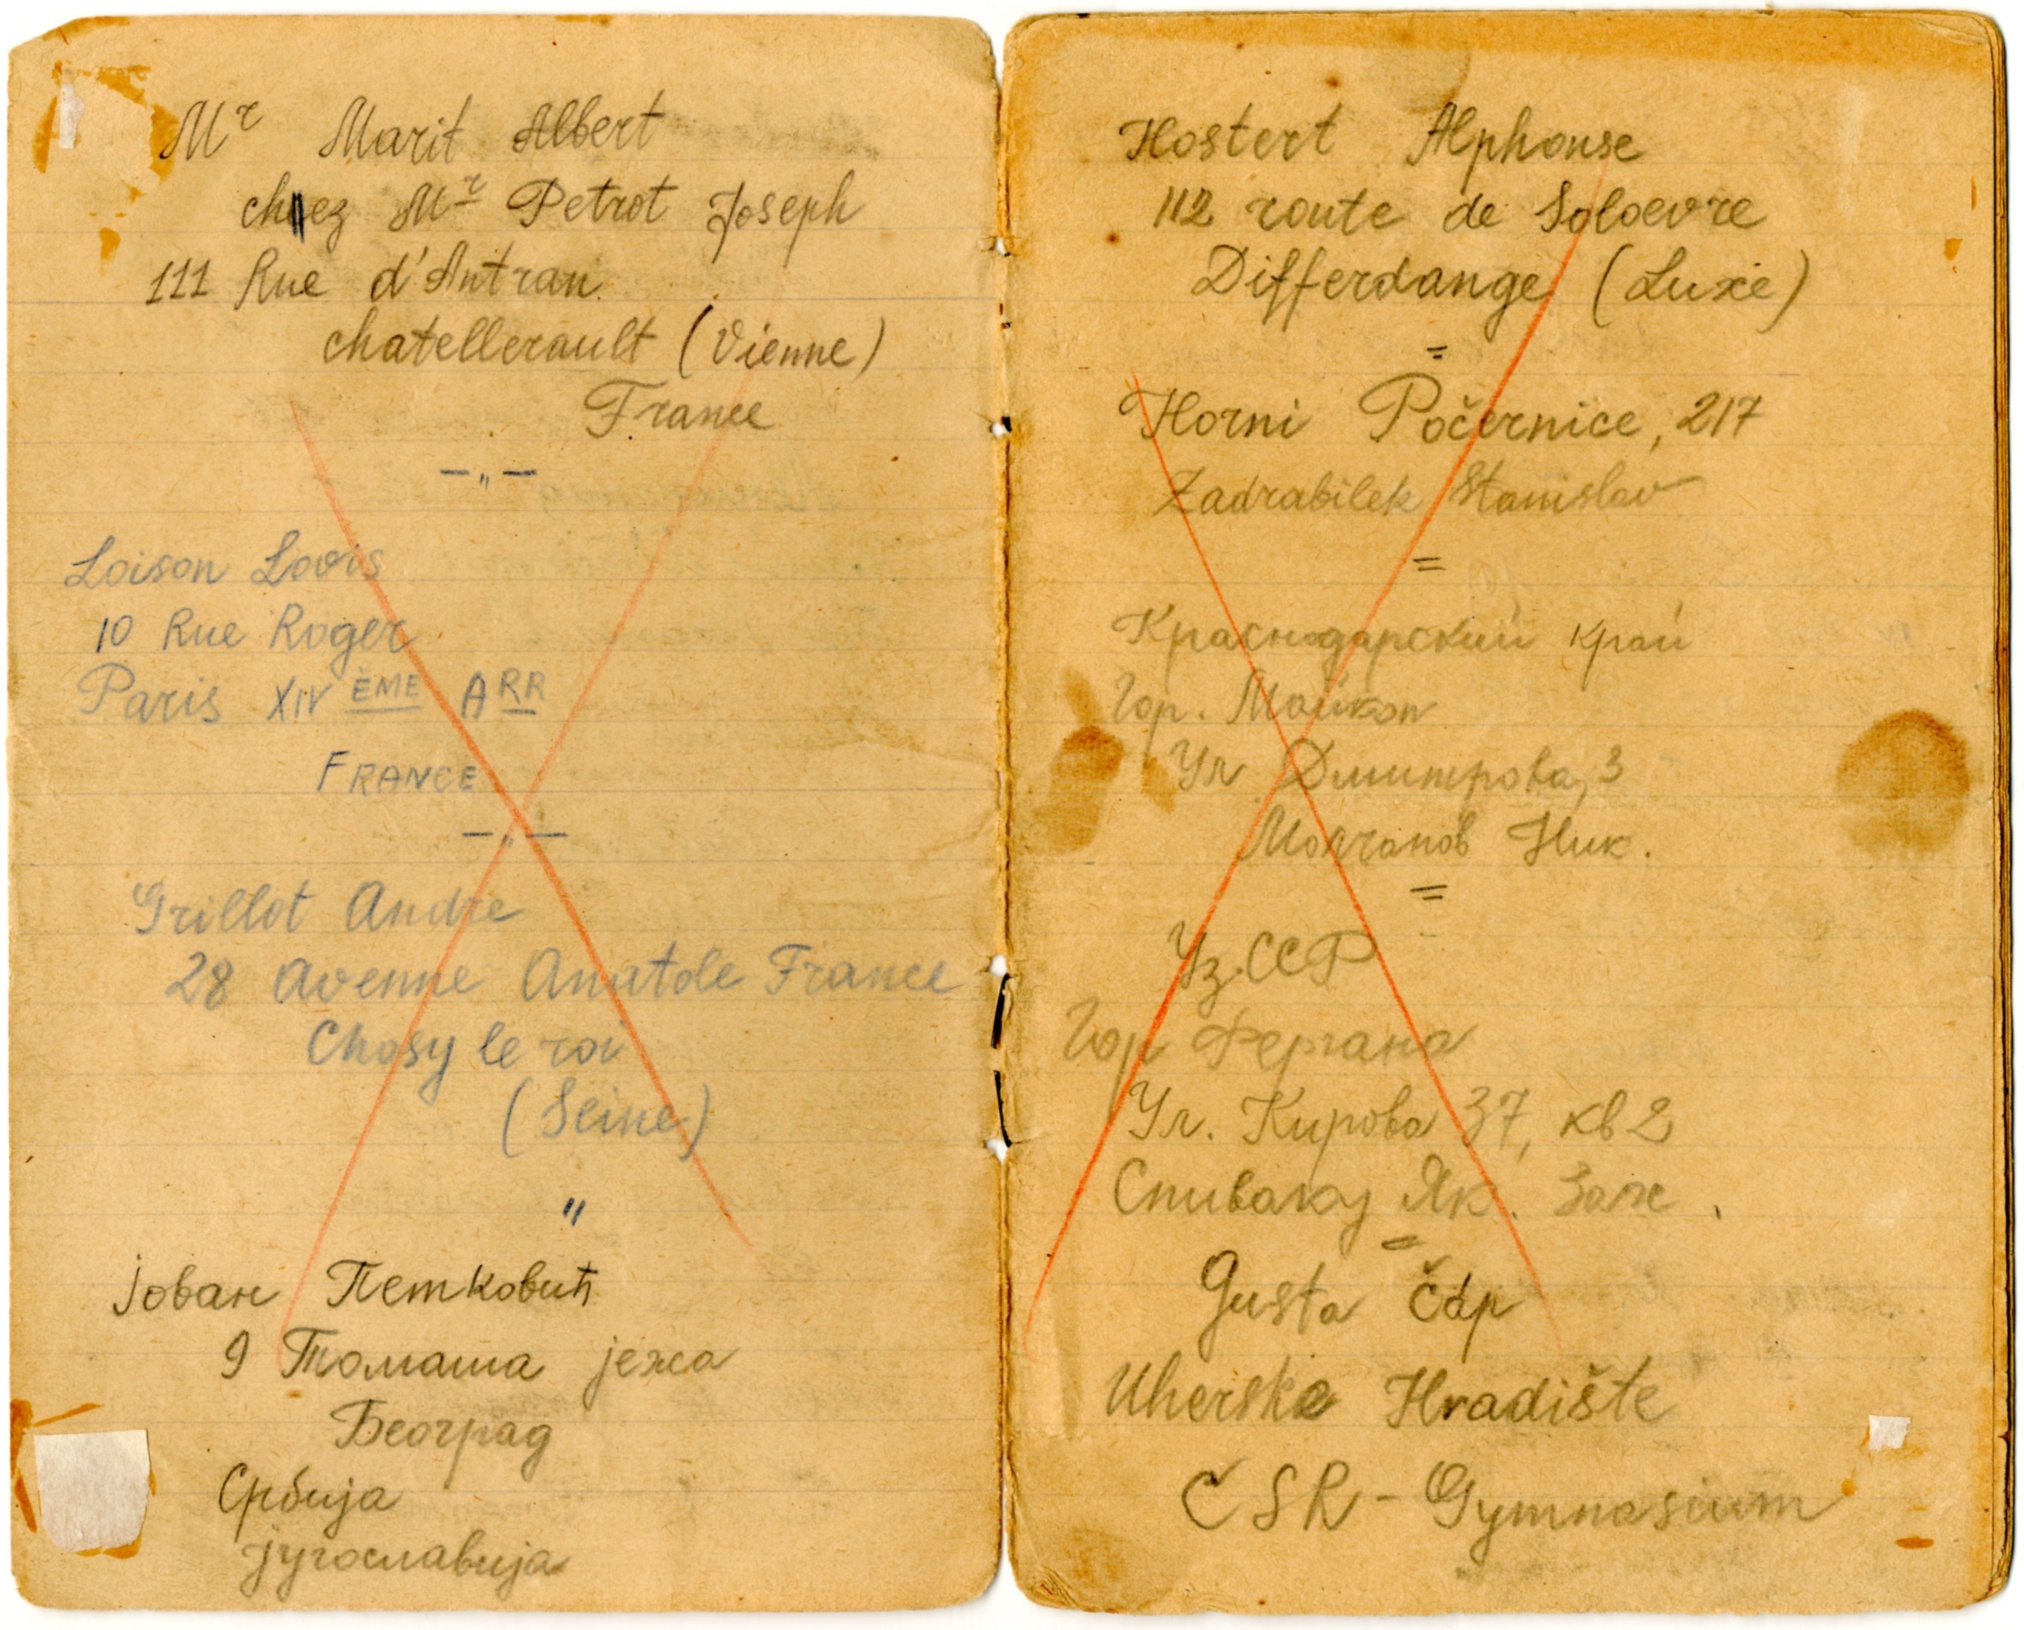 Mr Marit Albert
chez Mr Petrot Joseph
111 Rue d'Antran
chatellerault (Vienne)
France
—„—
Loison Lovis
10 Rue Roger
Paris XIV ÈME ARR
FRANCE
—„—
Grillot Andre
28 Avenue Anatole France
Chosy le roi
(Seine)
„
Јован Петковић
9 Томаша јежа
Београд
Србија
југославија
Hostert Alphonse
112 route de Soloevre
Differdange (Luxe)
=
Horni Počernice, 217
Zadrabilek Stanislav
=
Краснодарский край
Гор. Майкоп
Ул Дмитрова, 3
Молчанов Ник.
=
Уз.ССР
Гор Фергана
Ул. Кирова 37, кв 2
Спиваку Як.
=
Gusta Čáp
Uherske Hradište
ČSR - Gymnasium